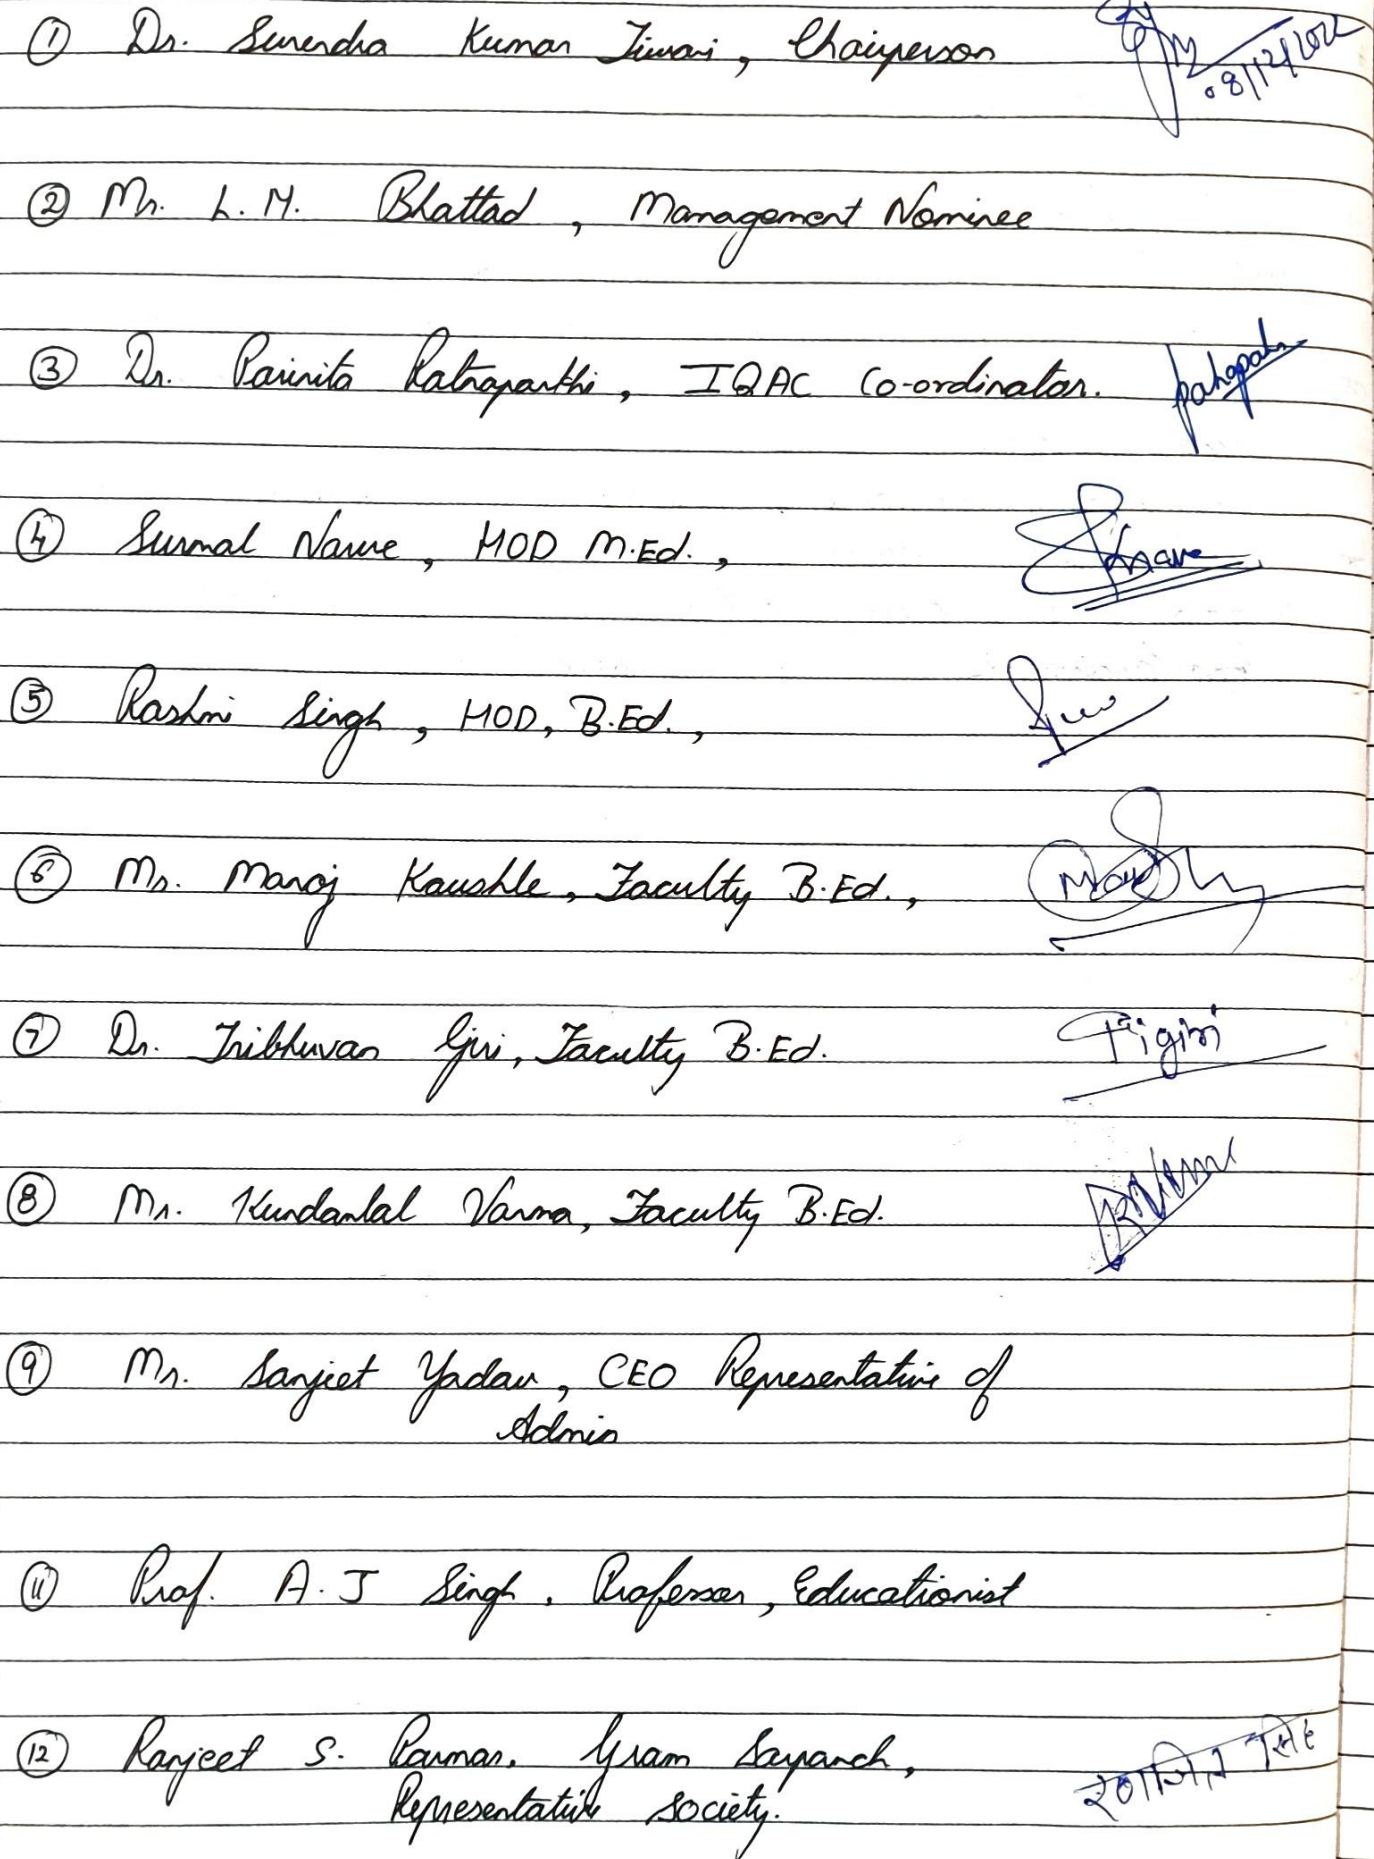 ① Dr. Surendra Kumar Tiwari, Chairperson
08/12/2022
② Mr. L. M. Bhattad, Management Nominee
③ Dr. Parinita Ratnaparkhi, IQAC Co-ordinator.
④ Surmal Narve, HOD M.Ed.,
⑤ Rashmi Singh, HOD, B.Ed.,
⑥ Mr. Manoj Kaushle, Faculty B.Ed.,
⑦ Dr. Tribhuvan Giri, Faculty B.Ed.
Tigiri
⑧ Mr. Kundanlal Varma, Faculty B.Ed.
⑨ Mr. Sanjeet Yadav, CEO Representative of
Admin
⑪ Prof. A. J Singh. Professor, Educationist
⑫ Ranjeet S. Parmar. Gram Sarpanch,
Representative society.